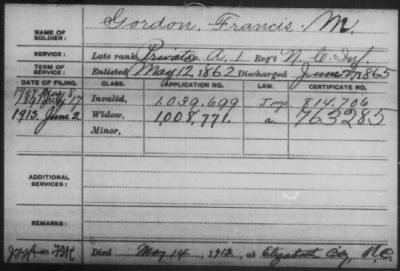 NAME OF SOLDIER: Gordon, Francis M.
SERVICE: Late rank Private Co. A, 1 Reg't N.C. Inf.
TERM OF SERVICE: Enlisted May 12, 1862 Discharged June 27, 1865
DATE OF FILING. CLASS. APPLICATION NO. LAW. CERTIFICATE NO.
May 8,
1891 July 17 Invalid, 1,039,699 814,706
1913. June 2 Widow, 1,008,771. 763285
Minor,
ADDITIONAL SERVICES:
REMARKS:
Died May 14, 1913, at Elizabeth City, N.C.